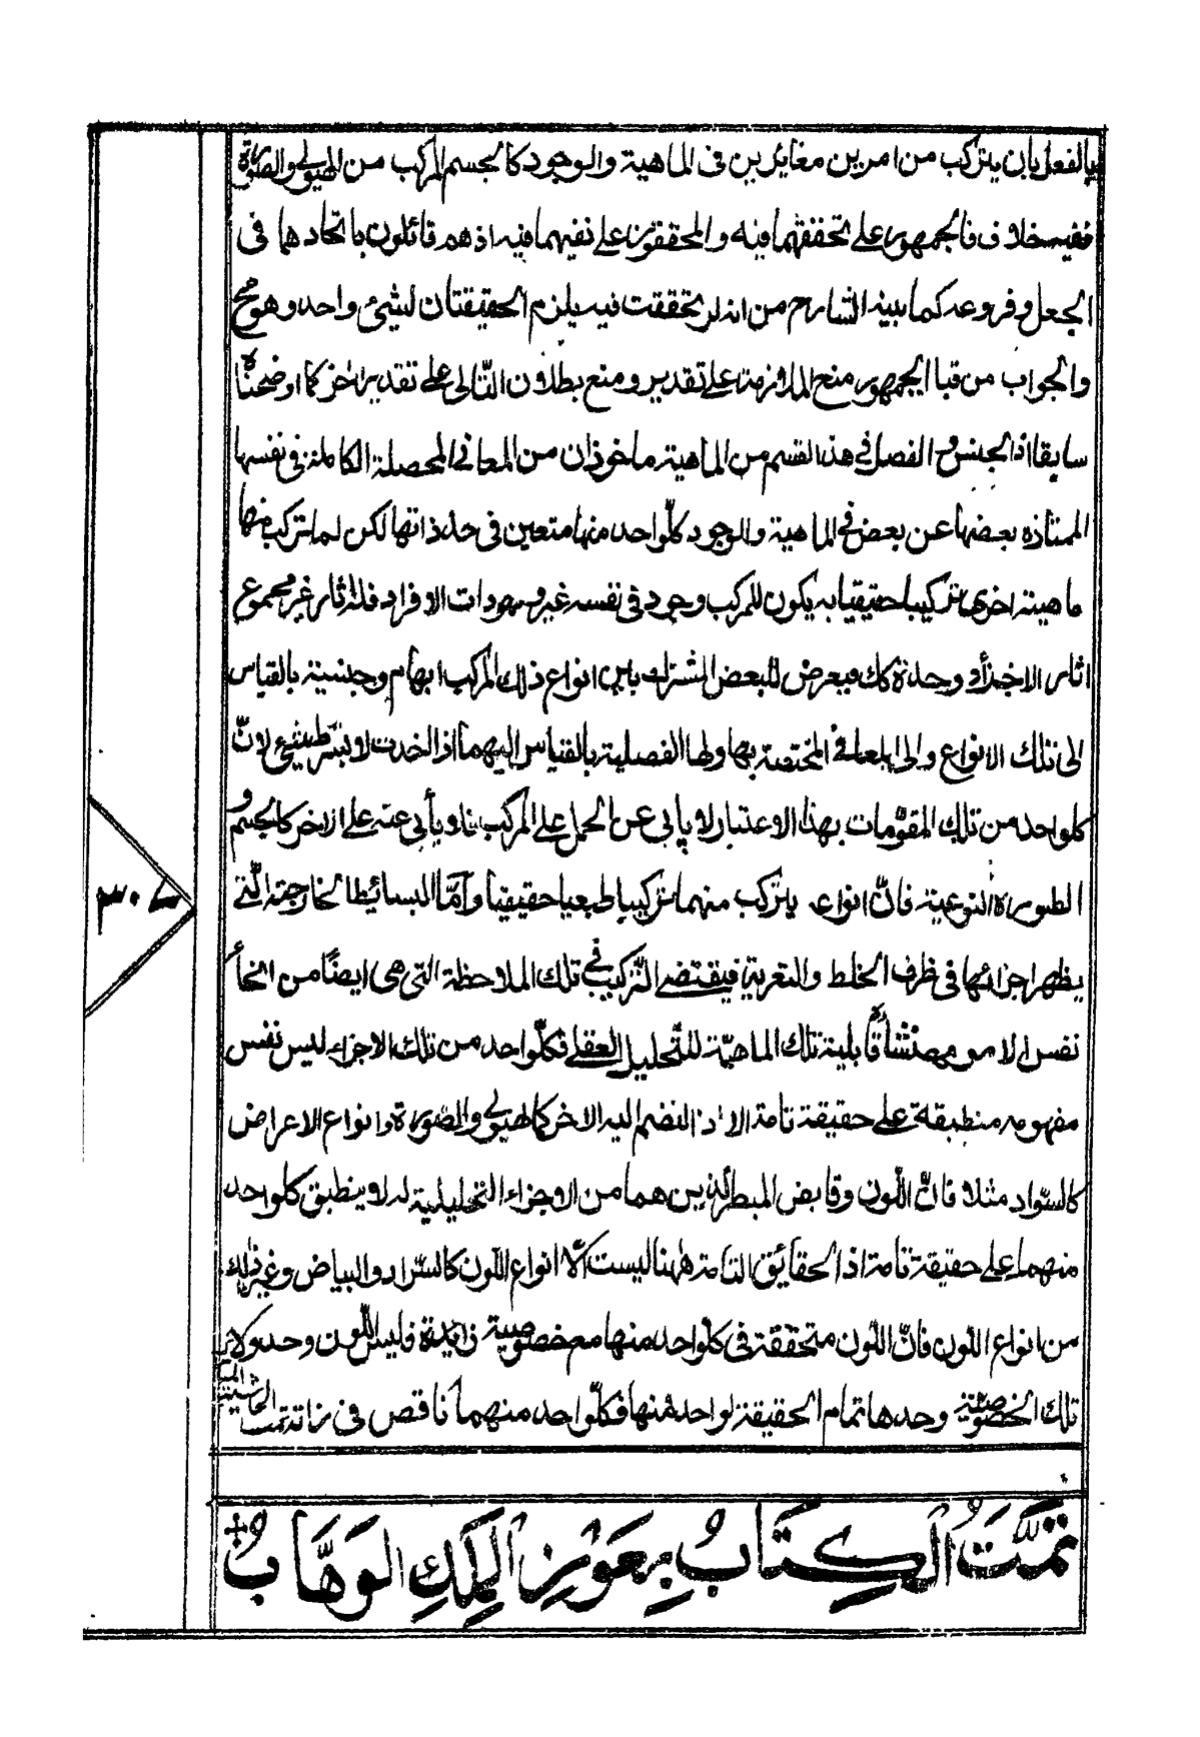 بالفعل بان يتركب من امرين مغايرين فى الماهية والوجود كالجسم المركب من الهيولى والصورة
ففيه خلاف فالجمهور على تحققهما فيه والمحققون على نفيهما فيه اذ هم قائلون باتحادهما فى
الجعل وفروعه كما بينه الشارح من انه لو تحققت فيه يلزم الحقيقتان لشىء واحد وهو مح
والجواب من قبل الجمهور منع الملازمة على تقدير ومنع بطلان التالى على تقدير اخر كما اوضحناه
سابقا اذ الجنس والفصل فى هذا القسم من الماهية ماخوذان من المعانى المحصلة الكاملة فى نفسها
الممتازه بعضها عن بعض فى الماهية والوجود كلواحد منها متعين فى حد ذاتها لكن لما تركب منها
ماهية اخرى تركيبا حقيقيا به يكون للمركب وجود فى نفسه غير وجودات الافراد فله اثار غير مجموع
اثار الاجزاء وحدة كك فيعرض للبعض المشترك بين انواع ذلك المركب ابهام وجنسية بالقياس
الى تلك الانواع والى المعانى المختصة بها ولها الفصلية بالقياس اليهما اذا اخذت لا بشرط شىء لان
كلواحد من تلك المقومات بهذا الاعتبار لا يابى عن الحمل على المركب ولا يأبى عنه على الاخر كالجسم و
الصورة النوعية فان انواعه يتركب منهما تركيبا طبعيا حقيقيا وامّا البسائط الخارجة التى
يظهر اجزائها فى ظرف الخلط والتعرية فيقتضى التركيب فى تلك الملاحظة التى هى ايضًا من انحاء
نفس الامر ومنشأه قابلية تلك الماهيّة للتّحليل العقلى فكلواحد من تلك الاجزاء ليس نفس
مفهومه منطبقة على حقيقة تامة الا اذا انضم اليه الاخر كالهيولى والصورة وانواع الاعراض
كالسّواد مثلا فانّ اللّون وقابض البصر الذين هما من الاجزاء التحليلية له لا ينطبق كلواحد
منهما على حقيقة تامة اذ الحقائق التامة ههنا ليست الّا انواع اللّون كالسّواد والبياض وغير ذلك
من انواع اللون فانّ اللّون متحققة فى كلواحد منها مع خصوصية زايدة فليس اللّون وحده ولا
تلك الخصوصيّة وحدها تمام الحقيقة لواحد منها فكلّواحد منهما ناقص فى ذاته تمت الحاشية
تَمَّتَ الْكِتَابُ بِعَوْنِ الْمَلِكِ الوَهَّابُ
٣٠٧